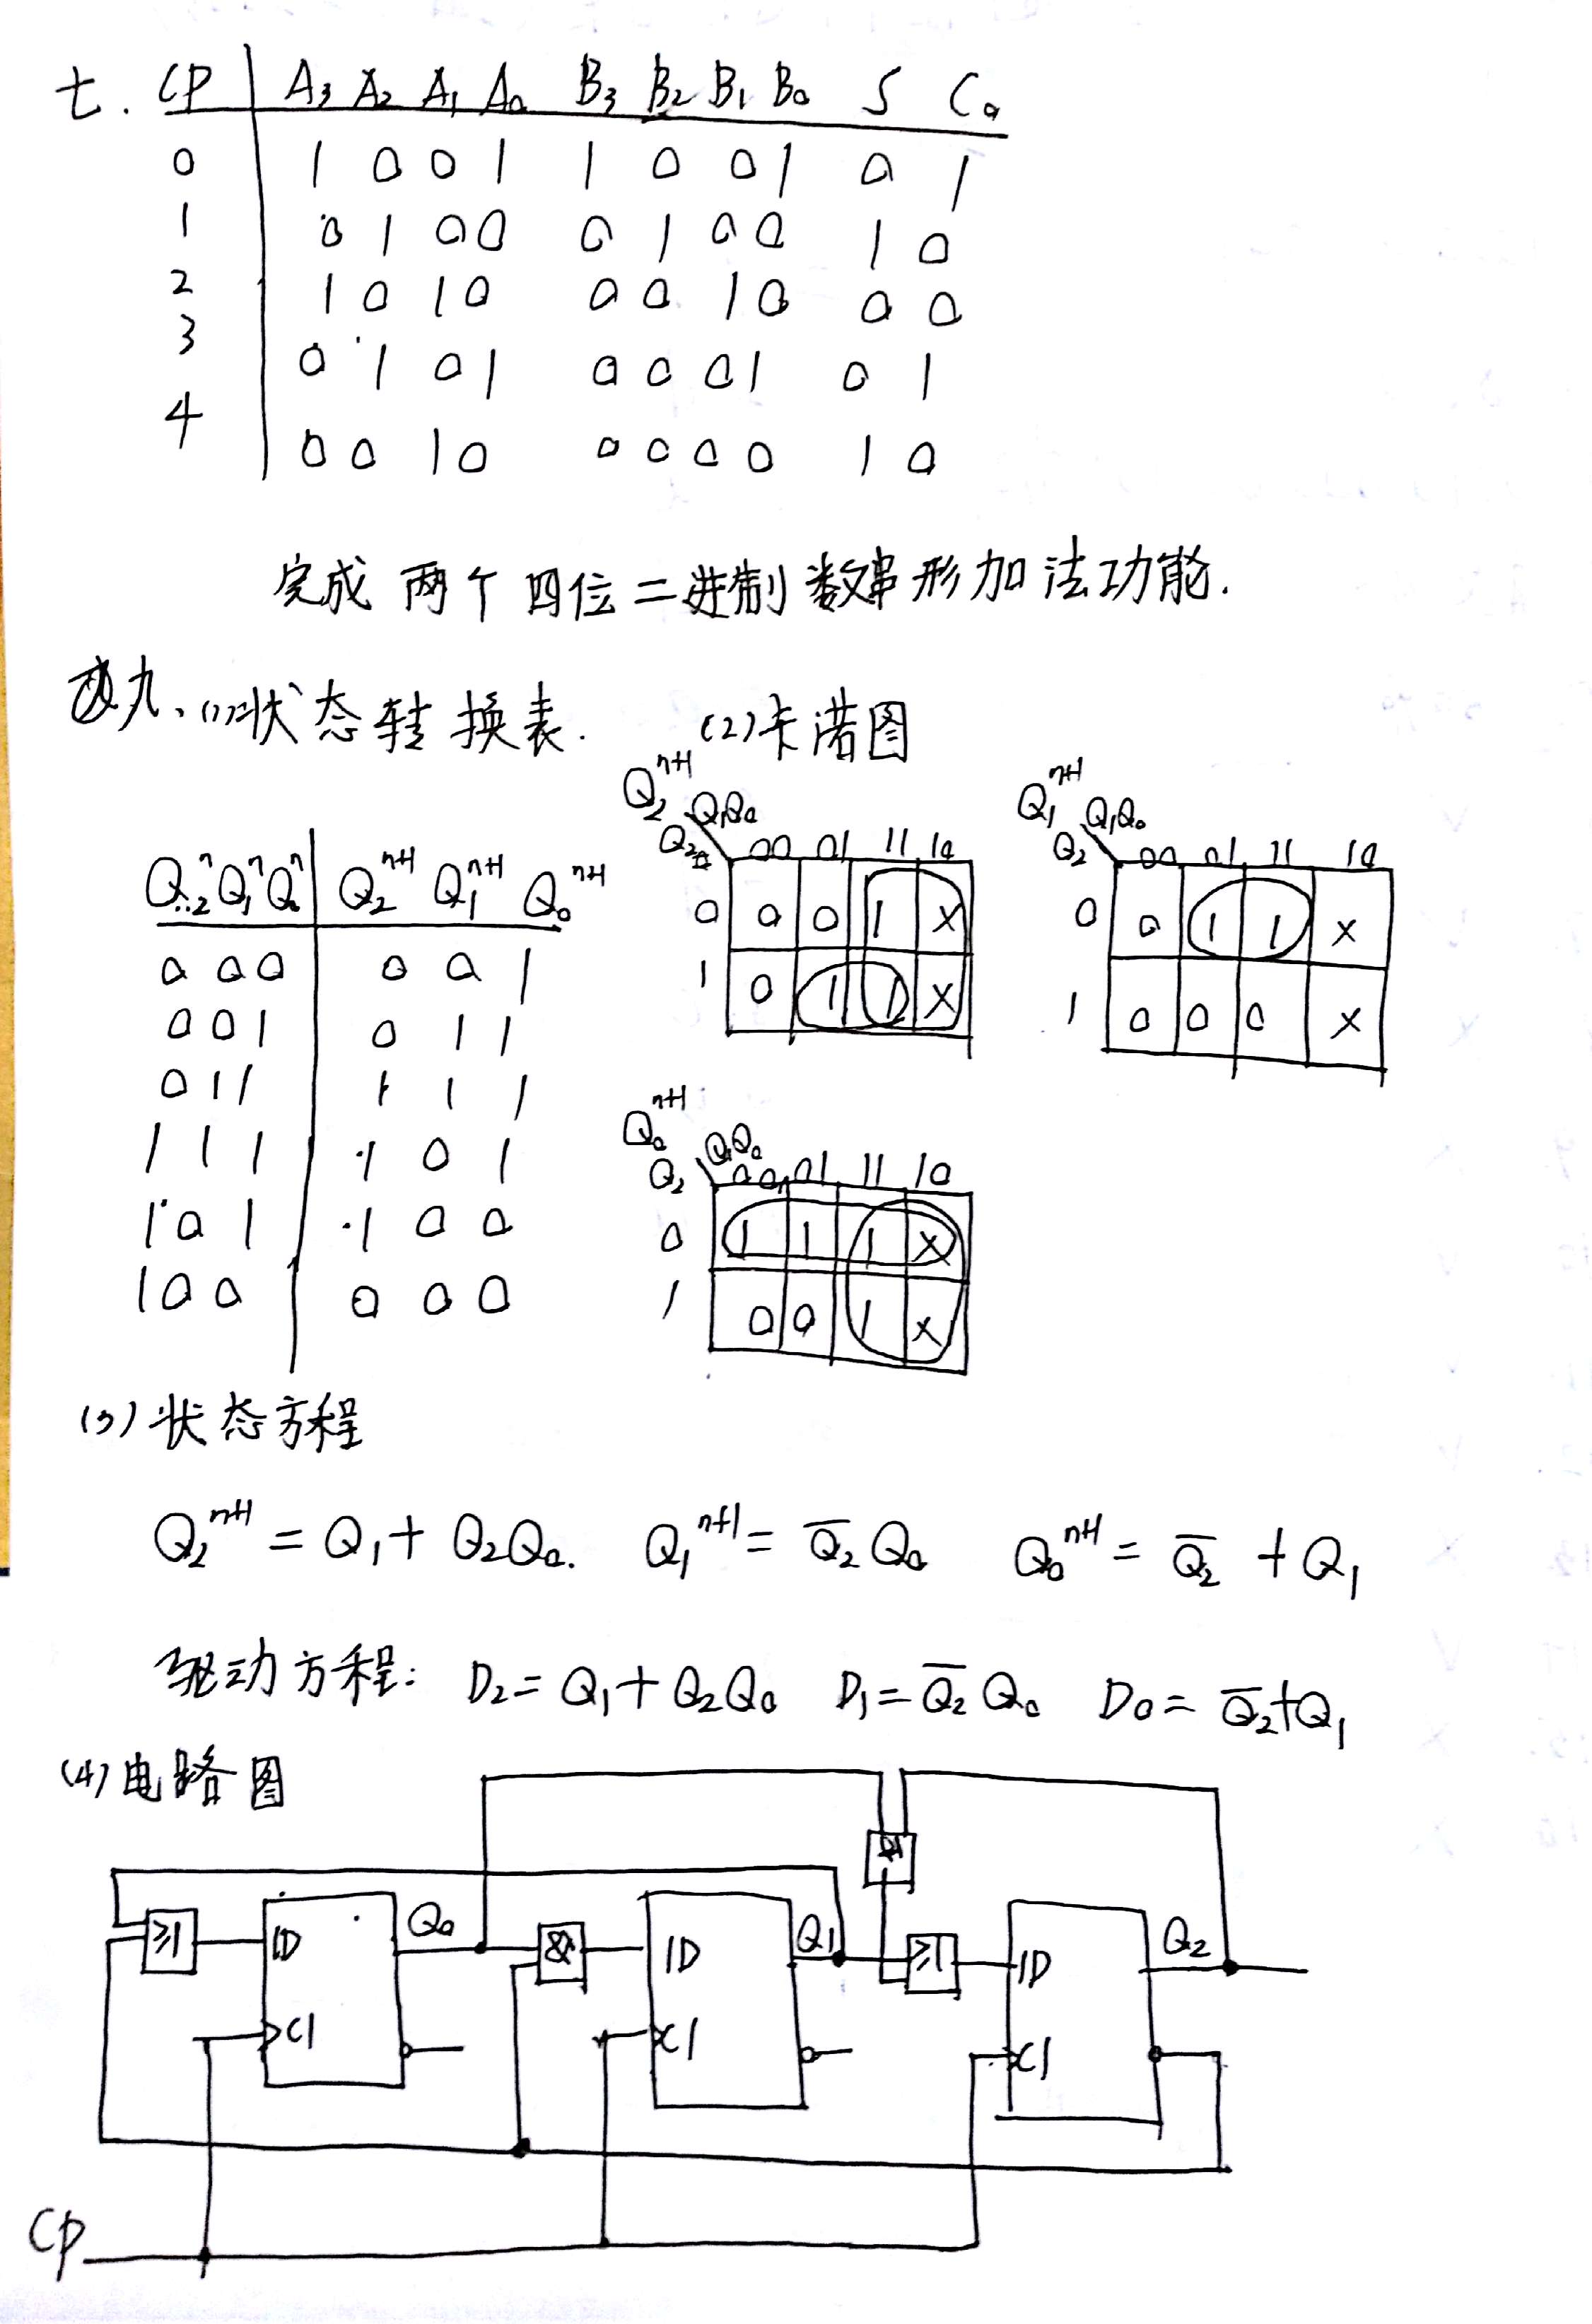 七. CP A₃ A₂ A₁ A₀ B₃ B₂ B₁ B₀ S C₀
0 1 0 0 1 1 0 0 1 0 1
1 0 1 0 0 0 1 0 0 1 0
2 1 0 1 0 0 0 1 0 0 0
3 0 1 0 1 0 0 0 1 0 1
4 0 0 1 0 0 0 0 0 1 0
完成两个四位二进制数串形加法功能.
九、(1)状态转换表. (2)卡诺图
Q₂ⁿ Q₁ⁿ Q₀ⁿ Q₂ⁿ⁺¹ Q₁ⁿ⁺¹ Q₀ⁿ⁺¹
0 0 0 0 0 1
0 0 1 0 1 1
0 1 1 1 1 1
1 1 1 1 0 1
1 0 1 1 0 0
1 0 0 0 0 0
Q₂ⁿ⁺¹ Q₁Q₀
Q₂ 00 01 11 10
0 0 0 1 ×
1 0 1 1 ×
Q₁ⁿ⁺¹ Q₁Q₀
Q₂ 00 01 11 10
0 0 1 1 ×
1 0 0 0 ×
Q₀ⁿ⁺¹ Q₁Q₀
Q₂ 00 01 11 10
0 1 1 1 ×
1 0 0 1 ×
(3)状态方程
Q₂ⁿ⁺¹ = Q₁ + Q₂Q₀. Q₁ⁿ⁺¹ = Q̅₂ Q₀ Q₀ⁿ⁺¹ = Q̅₂ + Q₁
驱动方程: D₂ = Q₁ + Q₂Q₀ D₁ = Q̅₂ Q₀ D₀ = Q̅₂ + Q₁
(4)电路图
&
≥1 1D Q₀ & 1D Q₁ ≥1 1D Q₂
C1 C1 C1
CP